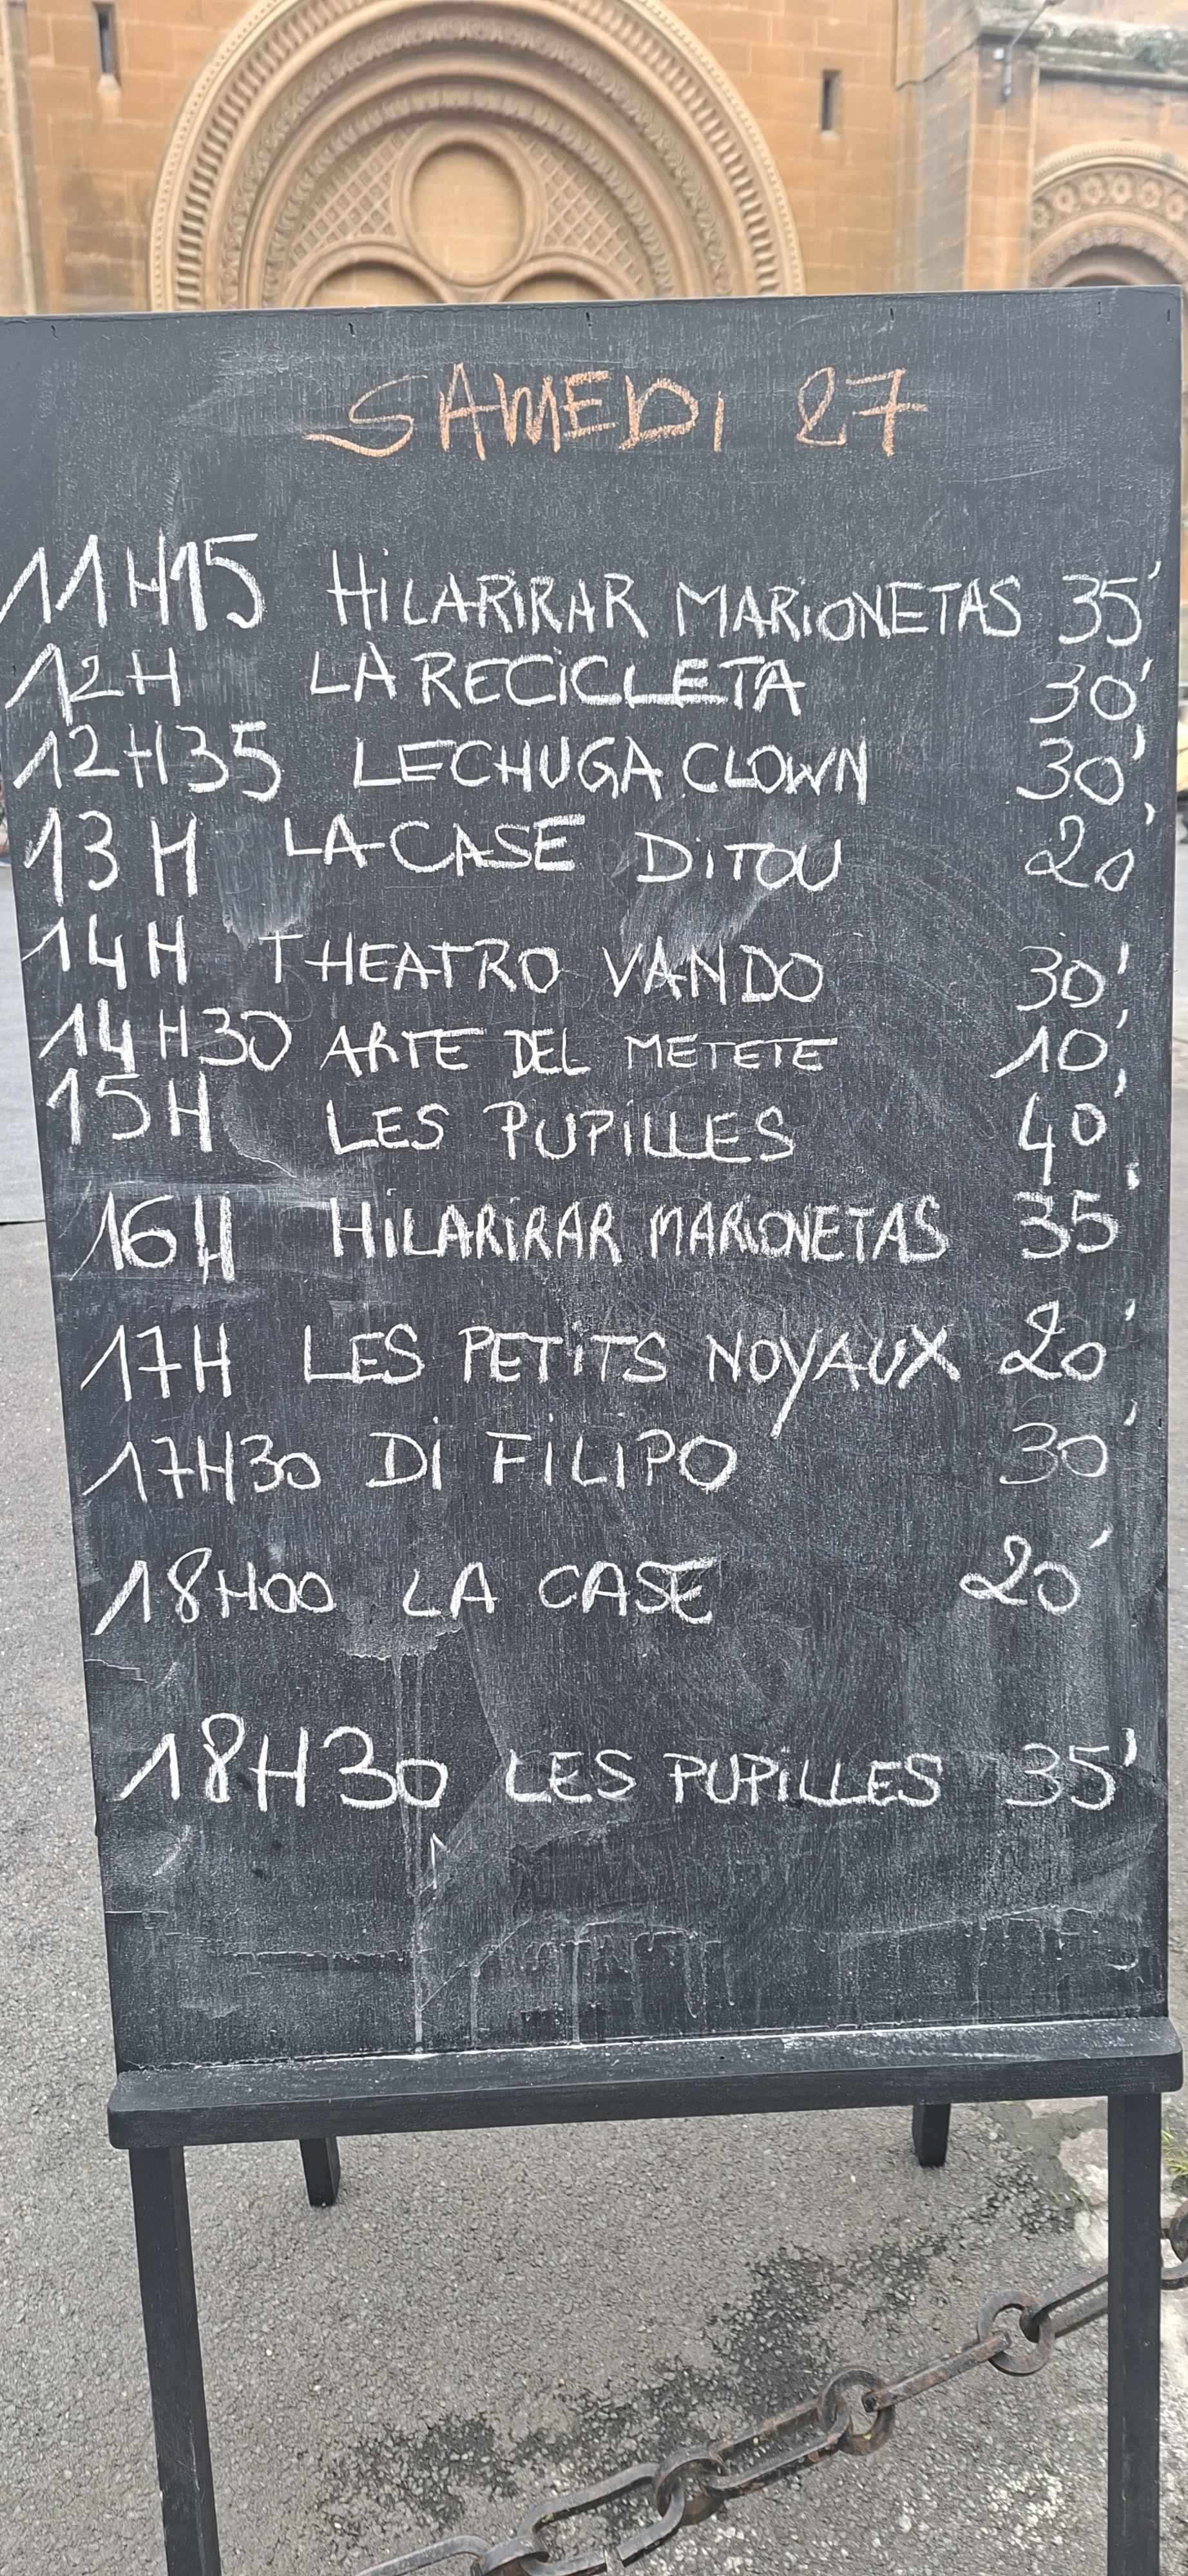 SAMEDI 27
11H15 HILARIRAR MARIONETAS 35'
12H LA RECICLETA 30'
12H35 LECHUGA CLOWN 30'
13H LA CASE DITOU 20'
14H THEATRO VANDO 30'
14H30 ARTE DEL METETE 10'
15H LES PUPILLES 40'
16H HILARIRAR MARIONETAS 35'
17H LES PETITS NOYAUX 20'
17H30 DI FILIPO 30'
18H00 LA CASE 20'
18H30 LES PUPILLES 35'